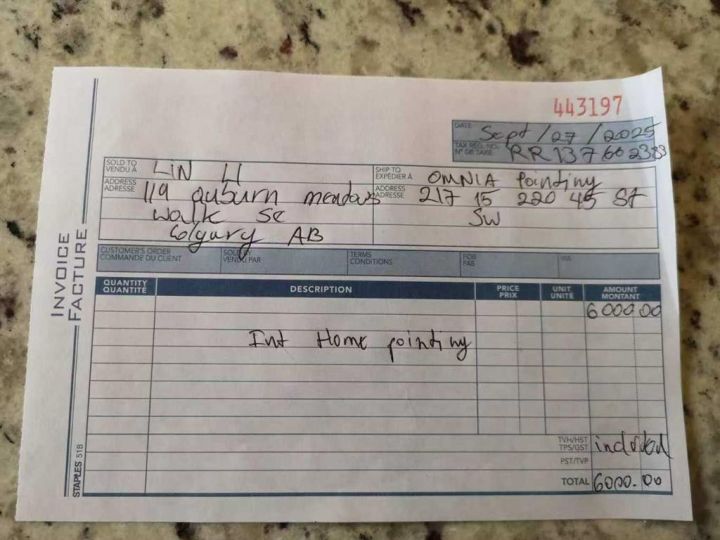 443197
DATE Sept / 27 / 2025
TAX REG. NO.
N° DE TAXE RR 137602383
SOLD TO
VENDU À LIN LI
ADDRESS
ADRESSE 119 auburn meadows
walk se
Calgary AB
SHIP TO
EXPÉDIER À OMNIA Painting
ADDRESS
ADRESSE 217 15 220 45 St
SW
CUSTOMER'S ORDER
COMMANDE DU CLIENT
SOLD BY
VENDU PAR
TERMS
CONDITIONS
FOB
FAB
VIA
INVOICE
FACTURE
QUANTITY
QUANTITÉ
DESCRIPTION
PRICE
PRIX
UNIT
UNITÉ
AMOUNT
MONTANT
6000.00
Int Home painting
TVH/HST
TPS/GST included
PST/TVP
TOTAL 6000.00
STAPLES 518